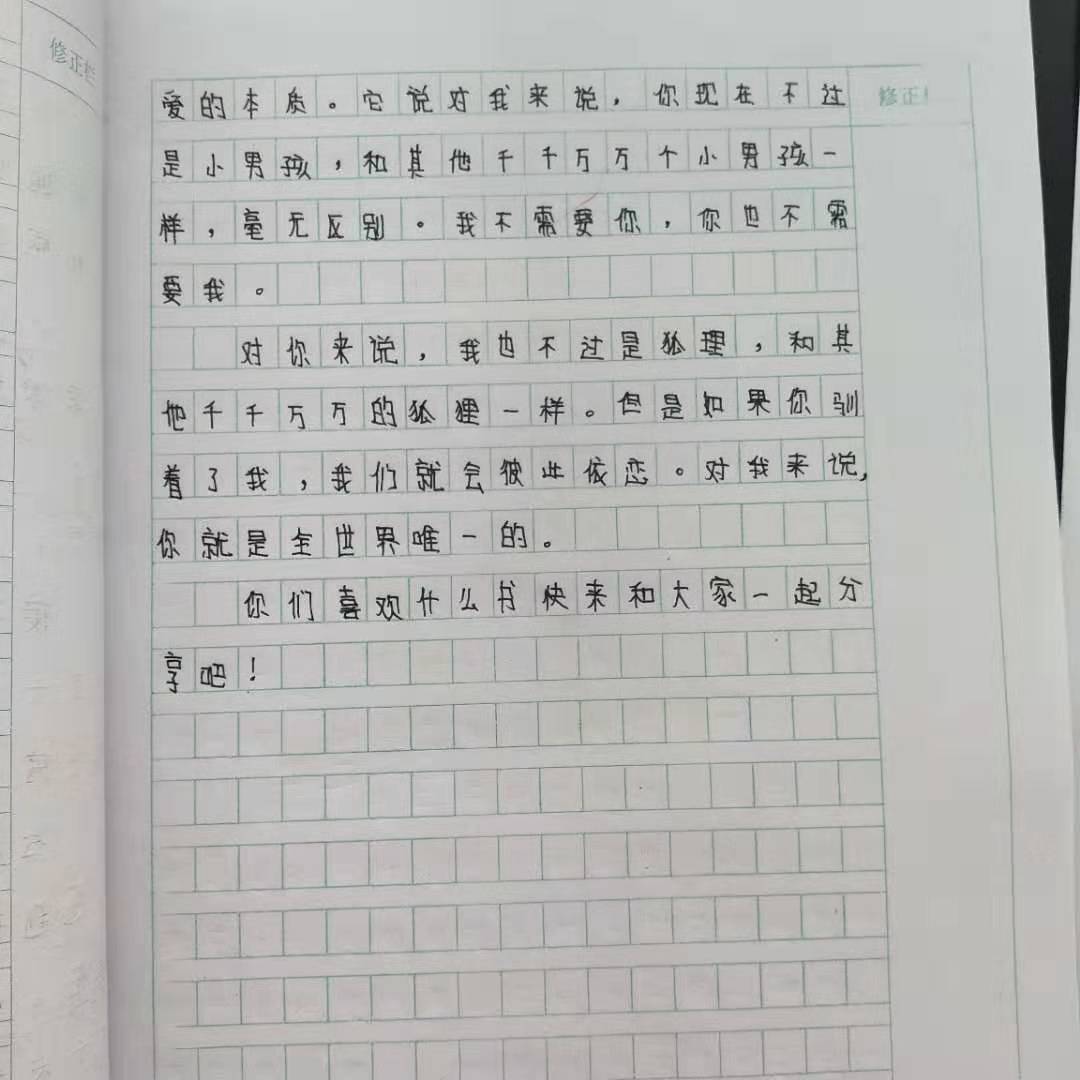 修正栏
修正
爱的本质。它说对我来说，你现在不过
是小男孩，和其他千千万万个小男孩一
样，毫无区别。我不需要你，你也不需
要我。
对你来说，我也不过是狐理，和其
他千千万万的狐狸一样。但是如果你驯
着了我，我们就会彼此依恋。对我来说，
你就是全世界唯一的。
你们喜欢什么书快来和大家一起分
享吧！